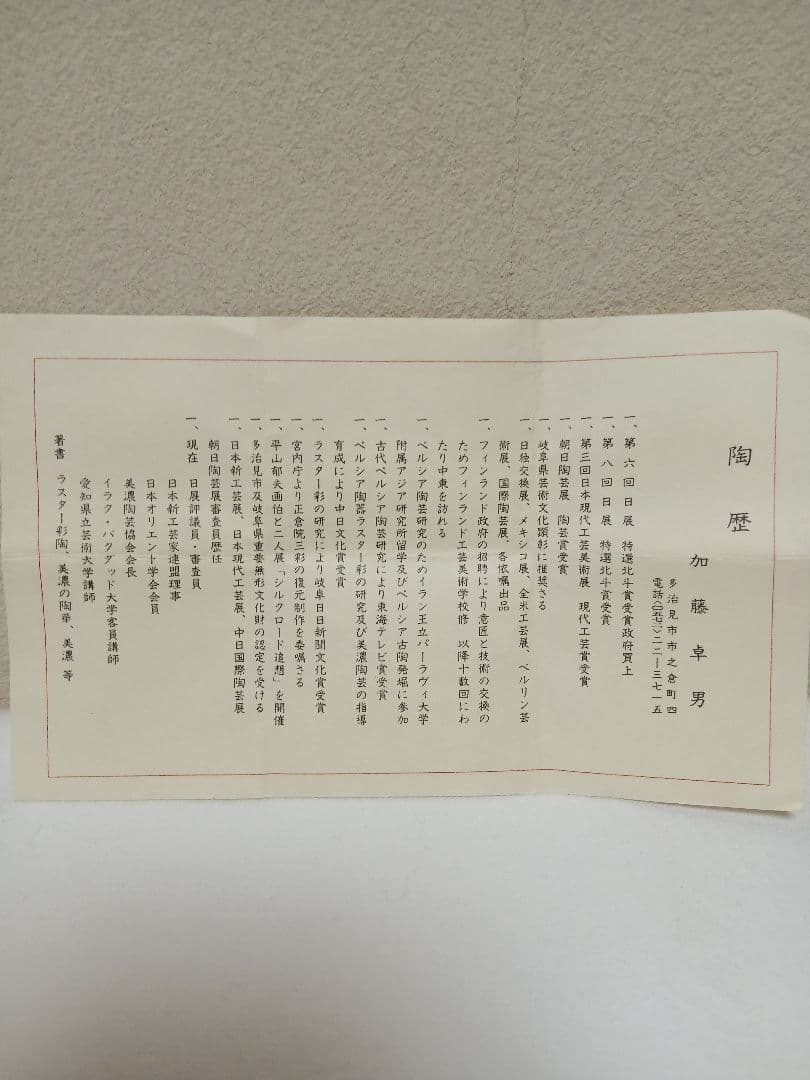 陶歴
加藤卓男
多治見市市之倉町四
電話(〇五七二)二二ー三七一五
一、第六回日展 特選北斗賞受賞政府買上
一、第八回日展 特選北斗賞受賞
一、第三回日本現代工芸美術展 現代工芸賞受賞
一、朝日陶芸展 陶芸賞受賞
一、岐阜県芸術文化顕彰に推奨さる
一、日独交換展、メキシコ展、全米工芸展、ベルリン芸
術展、国際陶芸展、各依嘱出品
一、フィンランド政府の招聘により意匠と技術の交換の
ためフィンランド工芸美術学校修 以降十数回にわ
たり中東を訪れる
一、ペルシア陶芸研究のためイラン王立パーラヴィ大学
附属アジア研究所留学及びペルシア古陶発堀に参加
一、古代ペルシア陶芸研究により東海テレビ賞受賞
一、ペルシア陶器ラスター彩の研究及び美濃陶芸の指導
育成により中日文化賞受賞
一、ラスター彩の研究により岐阜日日新聞文化賞受賞
一、宮内庁より正倉院三彩の復元制作を委嘱さる
一、平山郁夫画伯と二人展「シルクロード追想」を開催
一、多治見市及岐阜県重要無形文化財の認定を受ける
一、日本新工芸展、日本現代工芸展、中日国際陶芸展
朝日陶芸展審査員歴任
一、現在 日展評議員・審査員
日本新工芸家連盟理事
日本オリエント学会会員
美濃陶芸協会会長
イラク・バクダッド大学客員講師
愛知県立芸術大学講師
著書 ラスター彩陶、美濃の陶華、美濃 等